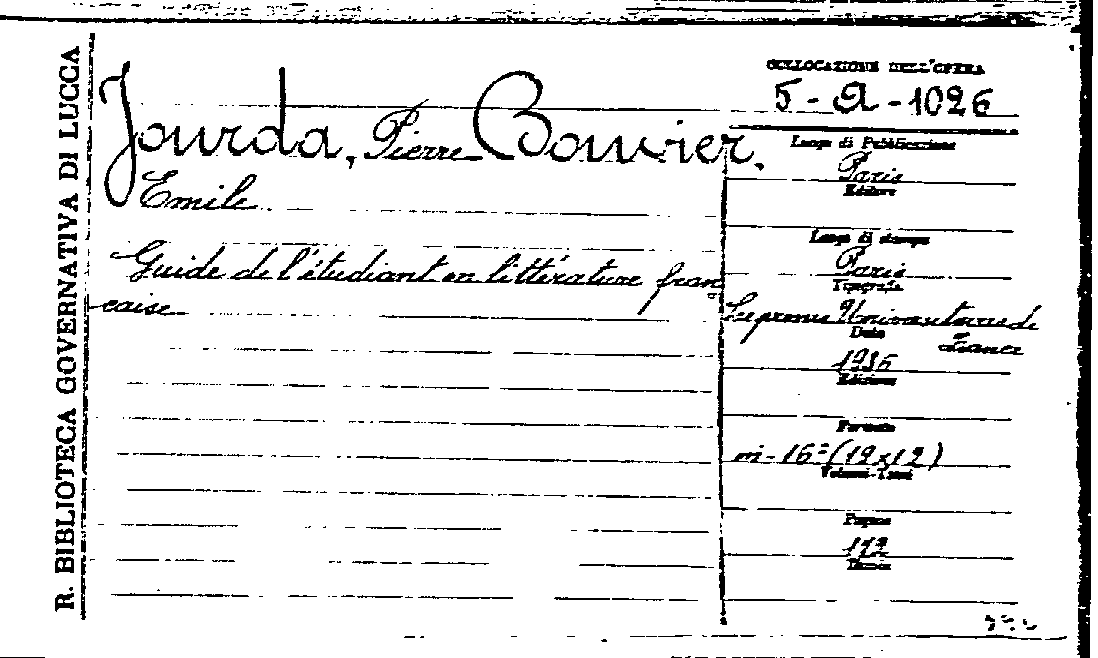 R. BIBLIOTECA GOVERNATIVA DI LUCCA
COLLOCAZIONE DELL'OPERA
5 - A - 1026
Jourda, Pierre Bouvier,
Emile
Guide de l'étudiant en littérature fran
çaise
Luogo di Pubblicazione
Paris
Editore
Luogo di stampa
Paris
Tipografia
Les presses Universitaires de
France
Data
1936
Edizione
Formato
in-16° (19x12)
Volumi-Tomi
Pagine
Prezzo